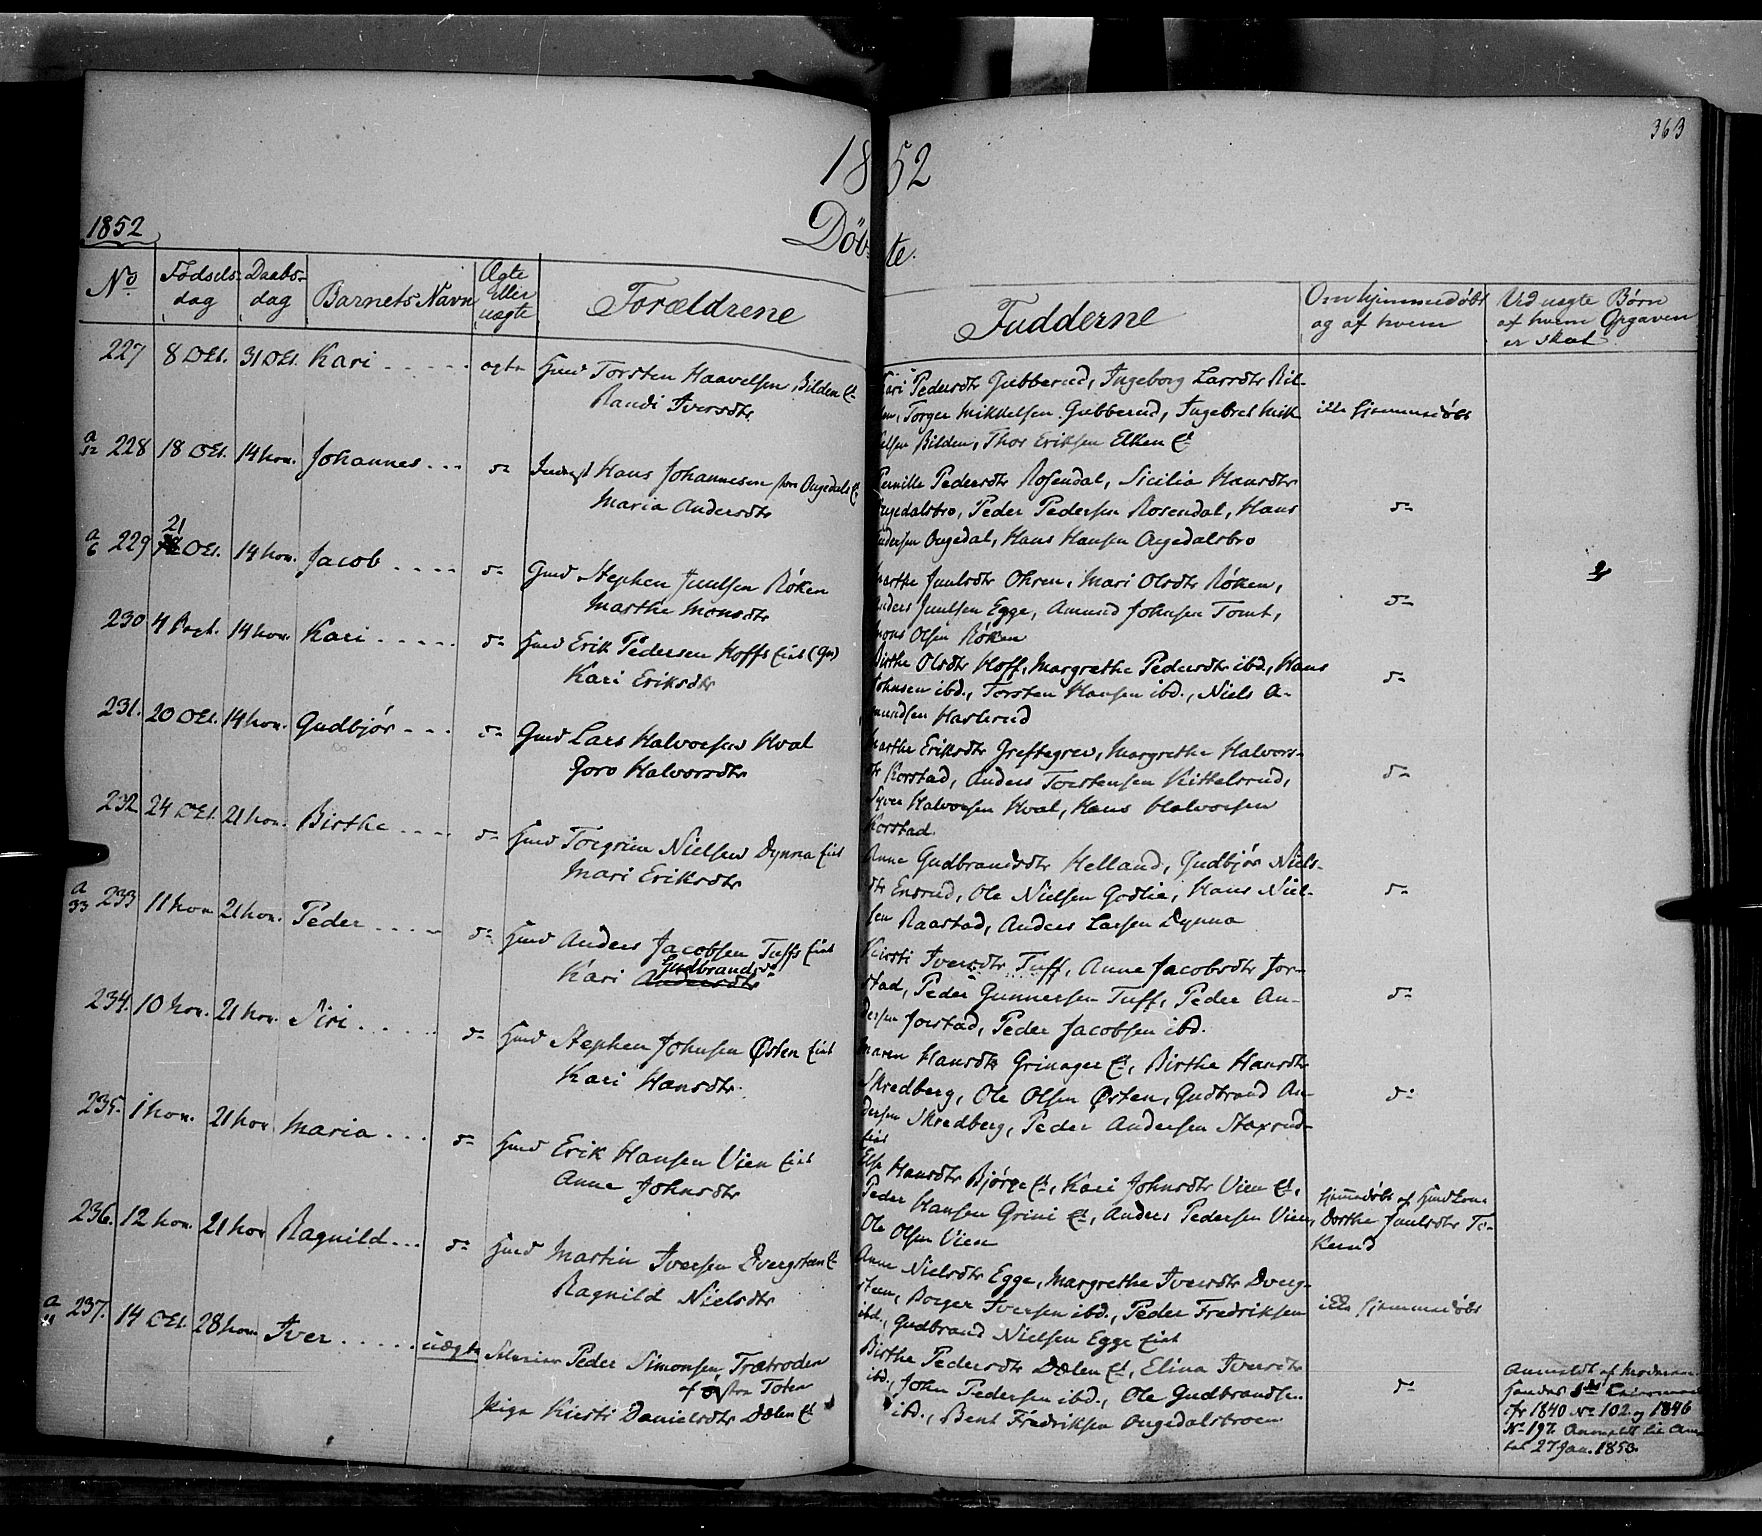 363
1852
1852
Døbte.
No
Fødsels-
dag
Daabs-
dag
Barnets Navn
Ægte
eller
uægte
Forældrene
Fadderne
Om hjemmedøbt
og af hvem
Ved uægte Børn
af hvem Opgaven
er skeet
227 8 Oct. 31 Oct. Kari ægte Hmd Torsten Haavelsen Bilden
Randi Iversdtr
Kari Pedersdtr Gubberud, Ingeborg Larsdtr Bil-
den, Torger Mikkelsen Gubberud, Ingebret Mik
kelsen Bilden, Thor Eriksen Elken
ikke hjemmedøbt
a 12 228 18 Oct. 14 Nov. Johannes do Hans Johannesen Augedals
Maria Andersdtr
Pernille Pedersdtr Rosendal, Sicilia Hansdtr
Augedalsbro, Peder Pedersen Rosendal, Hans
Andersen Augedal, Hans Hansen Augedalsbro
do
a 6 229 21 Oct. 14 Nov. Jacob do Gmd Stephen Juulsen Røken
Marthe Monsdtr
Marthe Juulsdtr Ohren, Mari Olsdtr Røken,
Anders Juulsen Egge, Amund Johnsen Tomt,
Mons Olsen Røken
do
230 4 Sept. 14 Nov. Kari do Hmd Erik Pedersen Hoffs eiet (Gr)
Kari Eriksdtr
Birthe Olsdtr Hoff, Margrethe Pedersdtr ibd., Hans
Johnsen ibd., Torsten Hansen ibd., Niels A-
mundsen Haslerud
do
231. 20 Oct. 14 Nov. Gudbjør do Gmd Lars Halvorsen Hval
Goro Halvorsdtr
Marthe Eriksdtr Greftegrev, Margrethe Halvors-
dtr Korstad, Anders Torstensen Kittelsrud,
Syver Halvorsen Hval, Hans Halvorsen
Korstad.
do
232 24 Oct. 21 Nov. Birthe do Hmd Torgrim Nielsen Dynna eiet
Mari Eriksdtr
Anne Gudbrandsdtr Helland, Gudbjør Niels-
dtr Ensrud, Ole Nielsen Godlie, Hans Niel-
sen Raastad, Anders Larsen Dynna
do
a 33 233 11 Nov 21 Nov. Peder do Hmd Anders Jacobsen Tuffs eiet
Gudbrandsdr
Kari Andersdtr
Kirsti Iversdtr Tuff, Anne Jacobsdtr Jor-
stad, Peder Gunnersen Tuff, Peder An-
dersen Jorstad, Peder Jacobsen ibd.
do
234. 10 Nov. 21 Nov. Siri do Hmd Stephen Johnsen Østen eiet
Kari Hansdtr.
Maren Hansdtr Grinager, Birthe Hansdtr
Skredberg, Ole Olsen Østen, Gudbrand An-
dersen Skredberg, Peder Andersen Staxrud-
eiet
do
235. 1 Nov. 21 Nov Maria do Hmd Erik Hansen Vien eiet
Anne Johnsdtr
Else Hansdtr Bjørge, Kari Johnsdtr Vien,
Peder Hansen Grini, Anders Pedersen Vien,
Ole Olsen Vien
hjemmedøbt af Hmdkone
Dorthe Juulsdtr To-
kerud
236. 12 Nov. 21 Nov Ragnild do Hmd Martin Iversen Dvergsten
Ragnild Nielsdtr
Anne Nielsdtr Egge, Margrethe Iversdtr Dverg-
steen, Borger Iversen ibd., Peder Fredriksen
ibd., Gudbrand Nielsen Egge eiet
ikke hjemmedøbt
a 237. 14 Oct. 28 Nov Iver uægte Peder Simonsen, Trætroden
af østre Toten
Pige Kirsti Danielsdtr Dælen
Birthe Pedersdtr Dælen, Elina Iversdtr
ibd., John Pedersen ibd., Ole Gudbrandsen
ibd., Bent Fredriksen Augedalsbroen
do
Anmeldt af Moderen.
Hendes 3die Leiermaal
cfr 1840 No 102 og 1846
No 197. Anmeldt til Am-
tet 27 Jan. 1853.